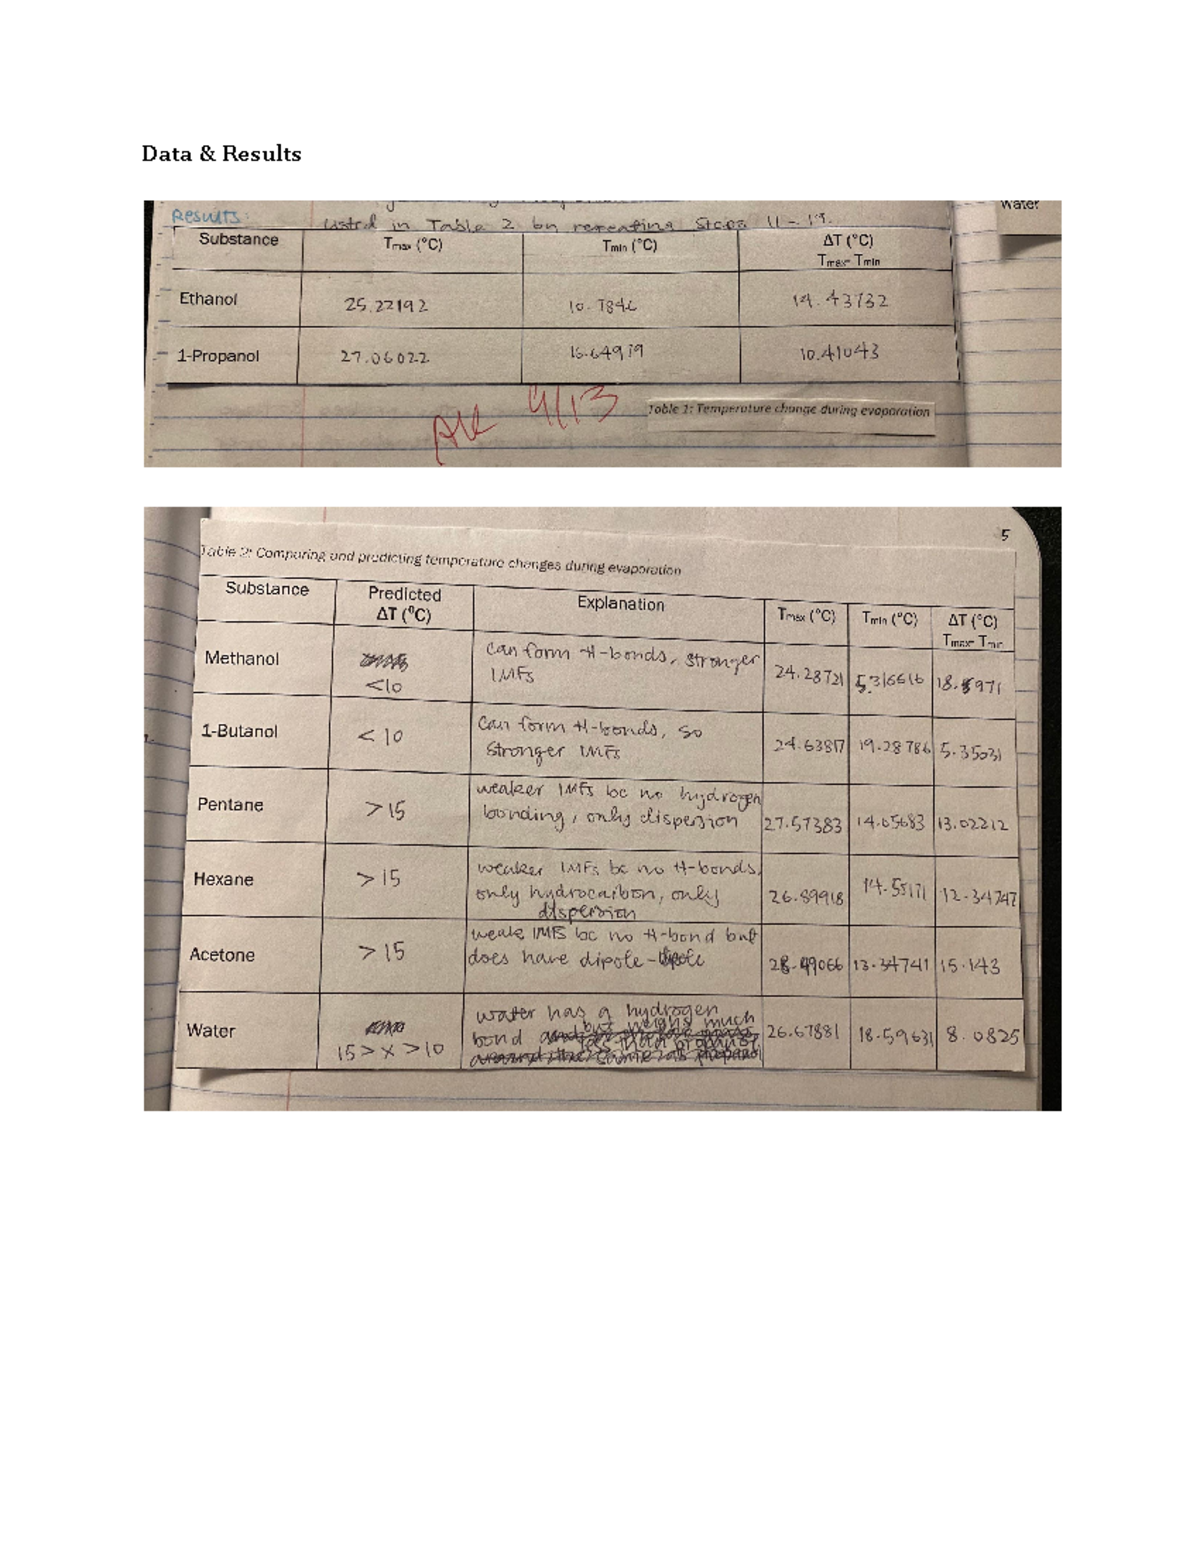 Data & Results
Water
Results:
listed in Table 2 by repeating Steps 11-19.
Substance Tmax (°C) Tmin (°C) ΔT (°C)
Tmax- Tmin
Ethanol 25.22192 10.7846 14.43732
1-Propanol 27.06022 16.64979 10.41043
4/13
Table 1: Temperature change during evaporation
5
Table 2: Comparing and predicting temperature changes during evaporation
Substance Predicted Explanation Tmax (°C) Tmin (°C) ΔT (°C)
ΔT (°C) Tmax- Tmin
Methanol can form H-bonds, stronger 24.28721 5.316616
<10 IMFs
1-Butanol <10 Can form H-bonds, so 24.63817 19.28786 5.35031
stronger IMFs
Pentane >15 weaker IMFs bc no hydrogen
bonding, only dispersion 27.57383 14.65683 13.02212
Hexane >15 weaker IMFs bc no H-bonds, 14.55171
only hydrocarbon, only 26.89918 12.34747
dispersion
Acetone >15 weak IMFs bc no H-bond but
does have dipole-dipole 28.49066 13.34741 15.143
Water water has a hydrogen
bond but weighs much 26.67881 18.59631 8.0825
15>x>10 less than propanol